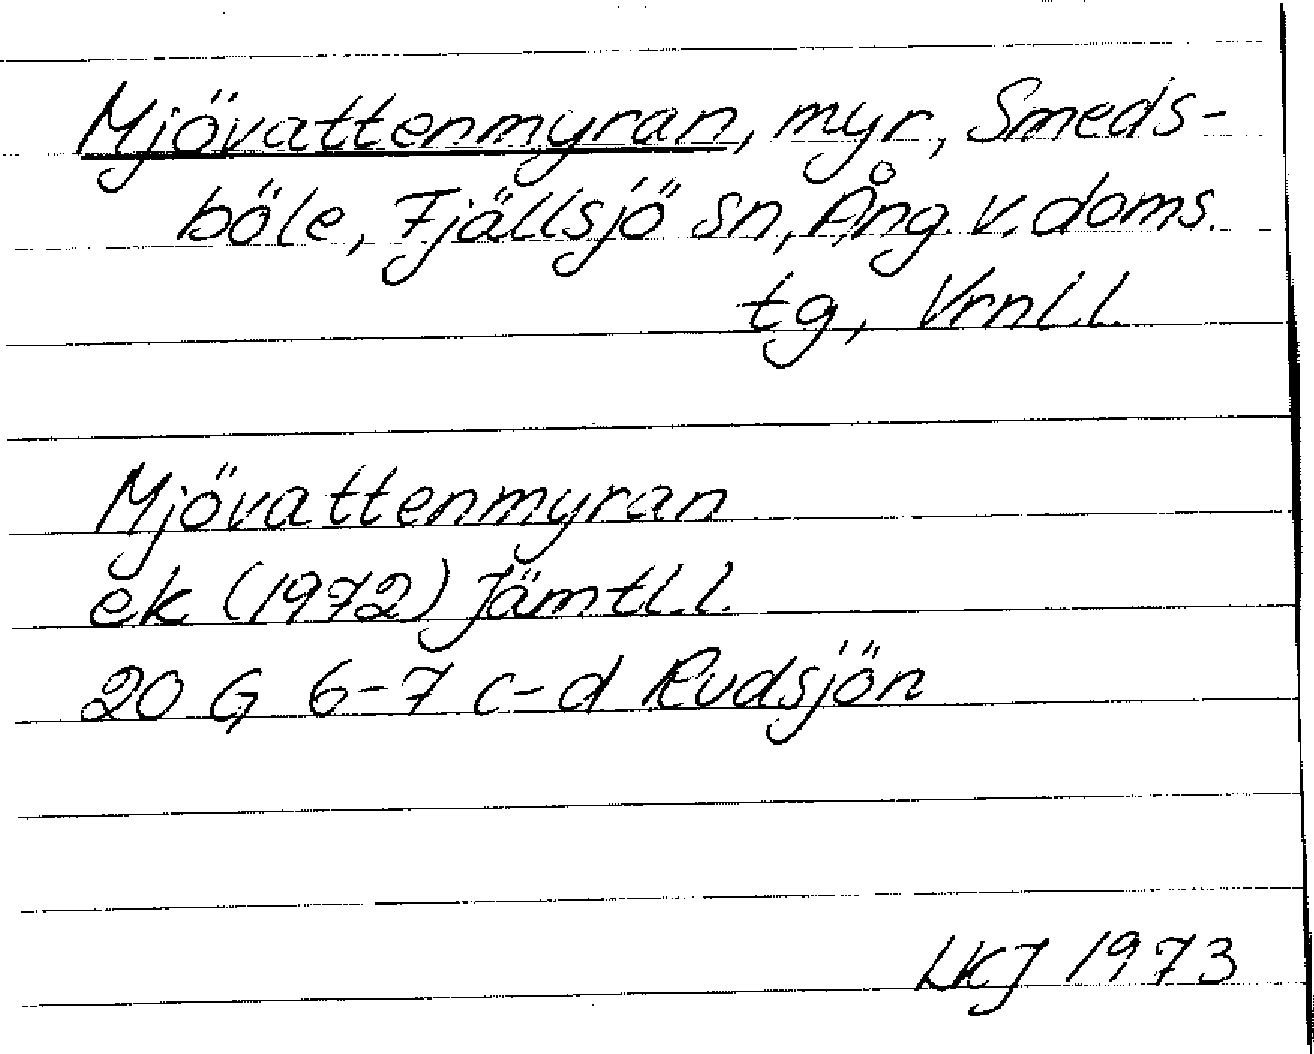 Mjövattenmyran, myr, Smeds-
böle, Fjällsjö sn, Ång. v. doms.
tg, Vrnl.l.
Mjövattenmyran
ek (1972) Jämtl.l.
20 G 6-7 c-d Rudsjön
LKJ 1973